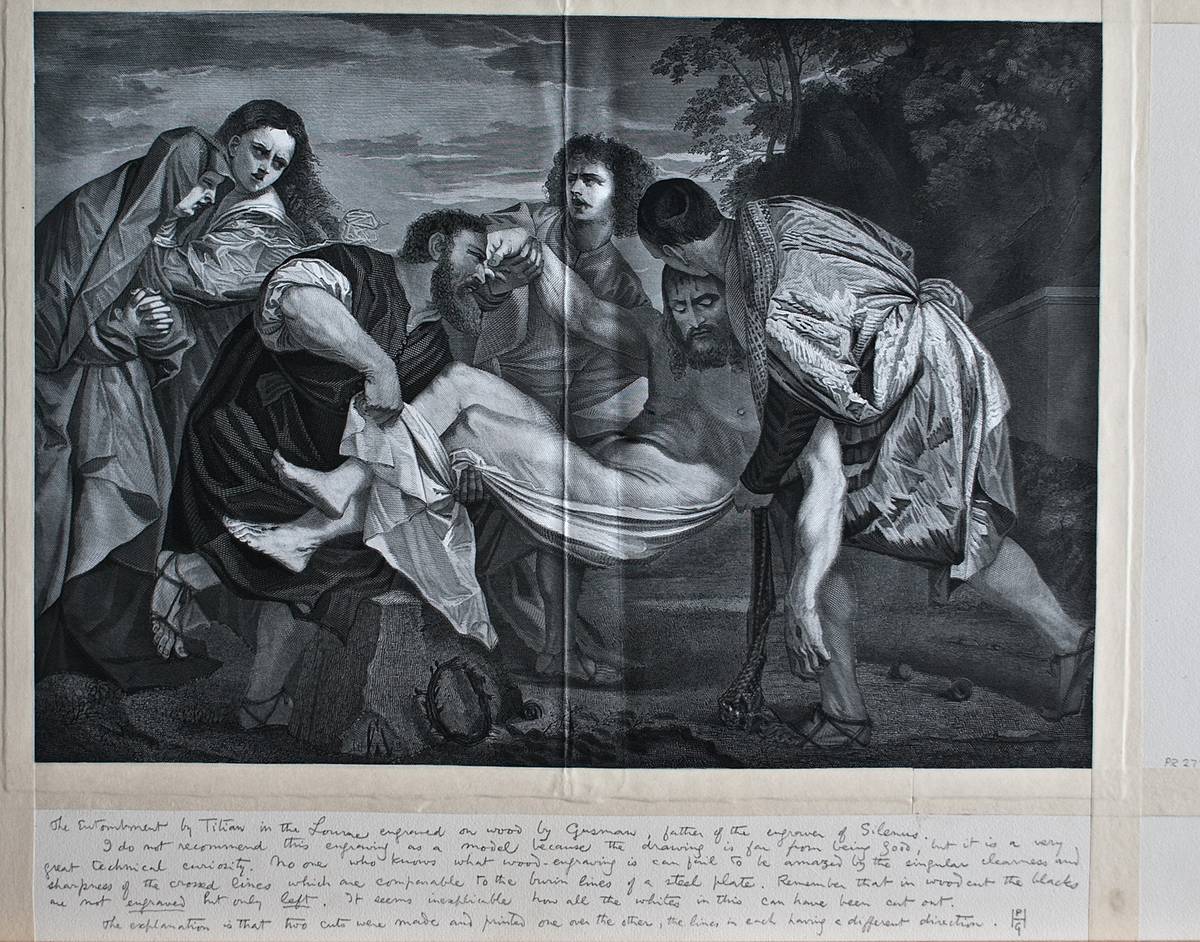 PR 27
The Entombment by Titian in the Louvre engraved on wood by Gusman, father of the engraver of Silenus.
I do not recommend this engraving as a model because the drawing is far from being good, but it is a very
great technical curiosity. No one who knows what wood-engraving is can fail to be amazed by the singular clearness and
sharpness of the crossed lines which are comparable to the burin lines of a steel plate. Remember that in woodcut the blacks
are not engraved but only left. It seems inexplicable how all the whites in this can have been cut out.
The explanation is that two cuts were made and printed one over the other, the lines in each having a different direction.